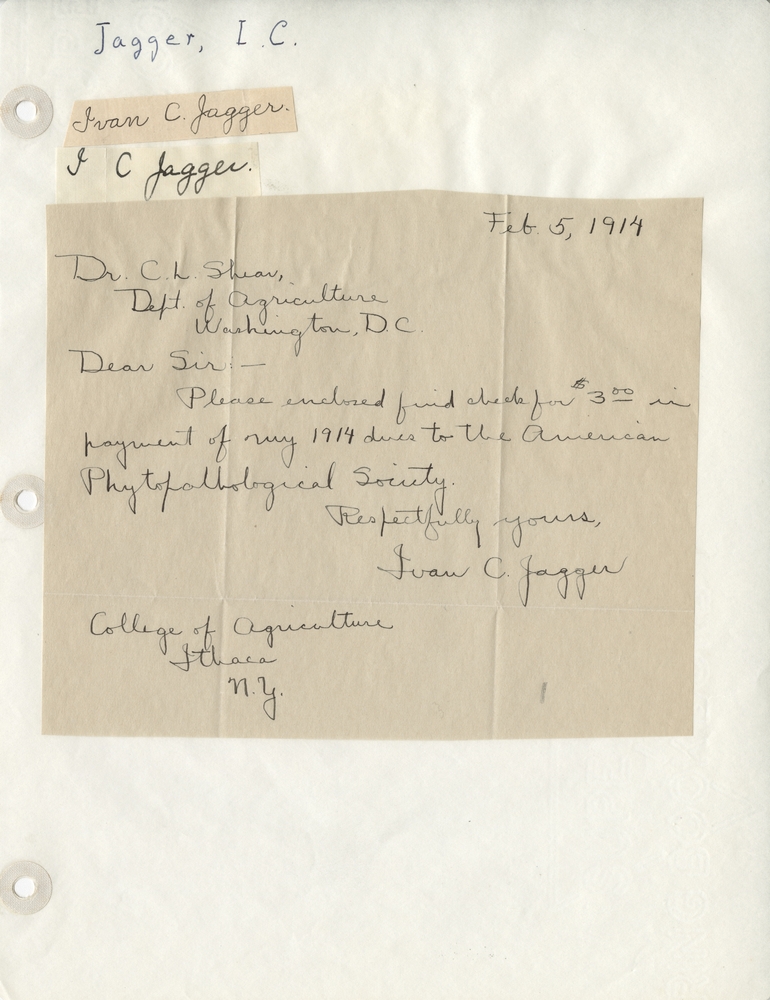 Jagger, I.C.
Ivan C. Jagger.
I C Jagger.
Feb. 5, 1914
Dr. C. L. Shear,
Dept. of Agriculture
Washington, D.C.
Dear Sir:—
Please enclosed find check for $3.00 in
payment of my 1914 dues to the American
Phytopathological Society.
Respectfully yours,
Ivan C. Jagger
College of Agriculture
Ithaca
N.Y.